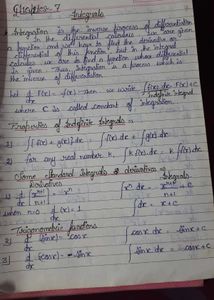 Chapter - 7
Integrals
* Integration is the inverse process of differentiation
In the differential calculus we are given
a function and we have to find the derivative or
differential of this function, but in the integral
calculus we are to find a function whose differential
is given. Thus, integration is a process which is
the inverse of differentiation
Let d/dx F(x) = f(x). Then we write ∫ f(x) dx = F(x) + C
Indefinite Integral
where C is called constant of integration.
Properties of Indefinite Integrals :-
1) ∫ [f(x) + g(x)] dx = ∫ f(x) dx + ∫ g(x) dx
2) for any real number k, ∫ k f(x) dx = k ∫ f(x) dx
Some standard Integrals &
Derivatives Integrals
1) d/dx [xⁿ⁺¹/n+1] = xⁿ ∫ xⁿ dx = xⁿ⁺¹/n+1 + C
when n=0 d/dx (x) = 1 ∫ dx = x + C
Trigonometric functions
2) d/dx (sin x) = cos x ∫ cos x dx = sin x + C
3) ∫ sin x dx = - cos x + C